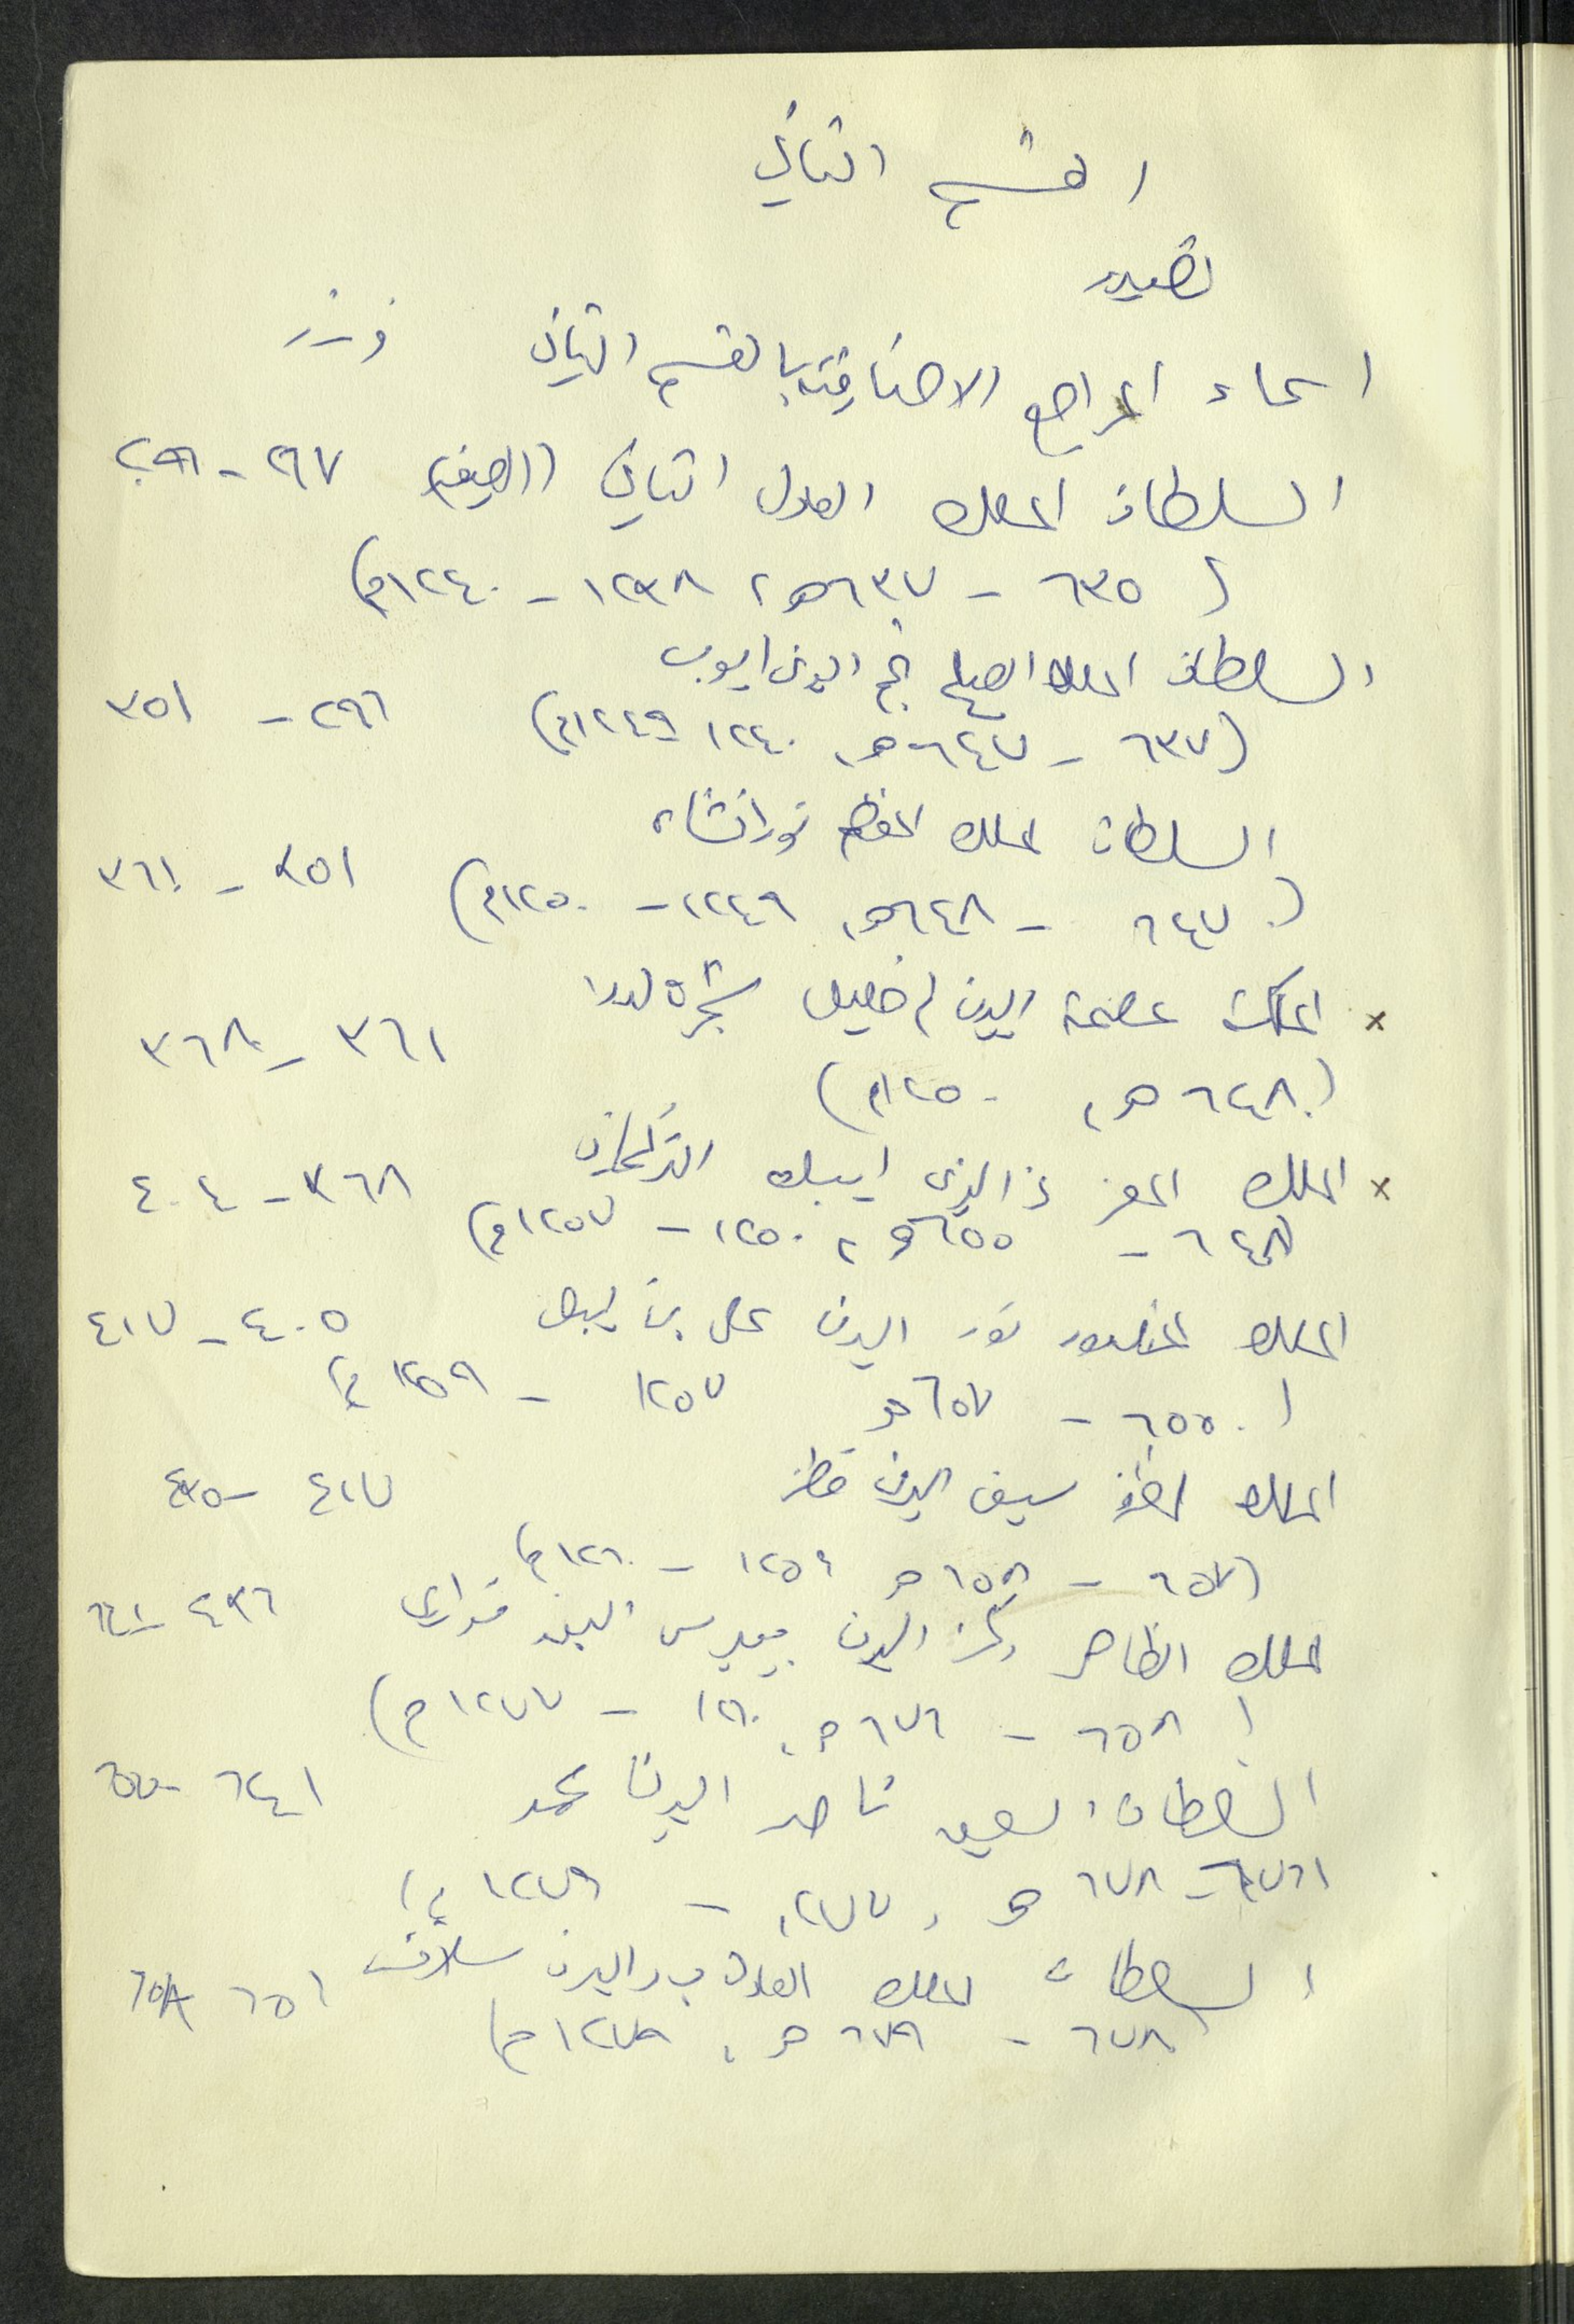 القسم الثاني
تصدير
اسماء المراجع الاضافية بالقسم الثاني و - ز
السلطان الملك العادل الثاني (الصغير) ٢٦٧ - ٢٩٦
( ٦٣٥ - ٦٣٧هـ، ١٢٣٨ - ١٢٤٠م)
السلطان الملك الصالح نجم الدين ايوب
(٦٣٧ - ٦٤٧هـ، ١٢٤٠ - ١٢٤٩م) ٢٩٦ - ٣٥١
السلطان الملك المعظم تورانشاه
(٦٤٧ - ٦٤٨هـ، ١٢٤٩ - ١٢٥٠م) ٣٥١ - ٣٦١
× الملكة عصمة الدين ام خليل شجرة الدر
(٦٤٨هـ، ١٢٥٠م) ٣٦١ - ٣٦٨
× الملك المعز عز الدين ايبك التركماني ٣٦٨ - ٤٠٤
(٦٤٨ - ٦٥٥هـ، ١٢٥٠ - ١٢٥٧م)
الملك المنصور نور الدين علي بن ايبك ٤٠٥ - ٤١٧
(٦٥٥ - ٦٥٧هـ ١٢٥٧ - ١٢٥٩م)
الملك المظفر سيف الدين قطز ٤١٧ - ٤٣٥
(٦٥٧ - ٦٥٨هـ ١٢٥٩ - ١٢٦٠م)
الملك الظاهر ركن الدين بيبرس البندقداري ٤٣٦ - ٦٤١
(٦٥٨ - ٦٧٦هـ، ١٢٦٠ - ١٢٧٧م)
السلطان السعيد ناصر الدين محمد ٦٤١ -
(٦٧٦ - ٦٧٨هـ، ١٢٧٧ - ١٢٧٩م)
السلطان الملك العادل بدر الدين سلامش ٦٥٦ ٦٥٨
(٦٧٨ - ٦٧٩هـ، ١٢٧٩م)